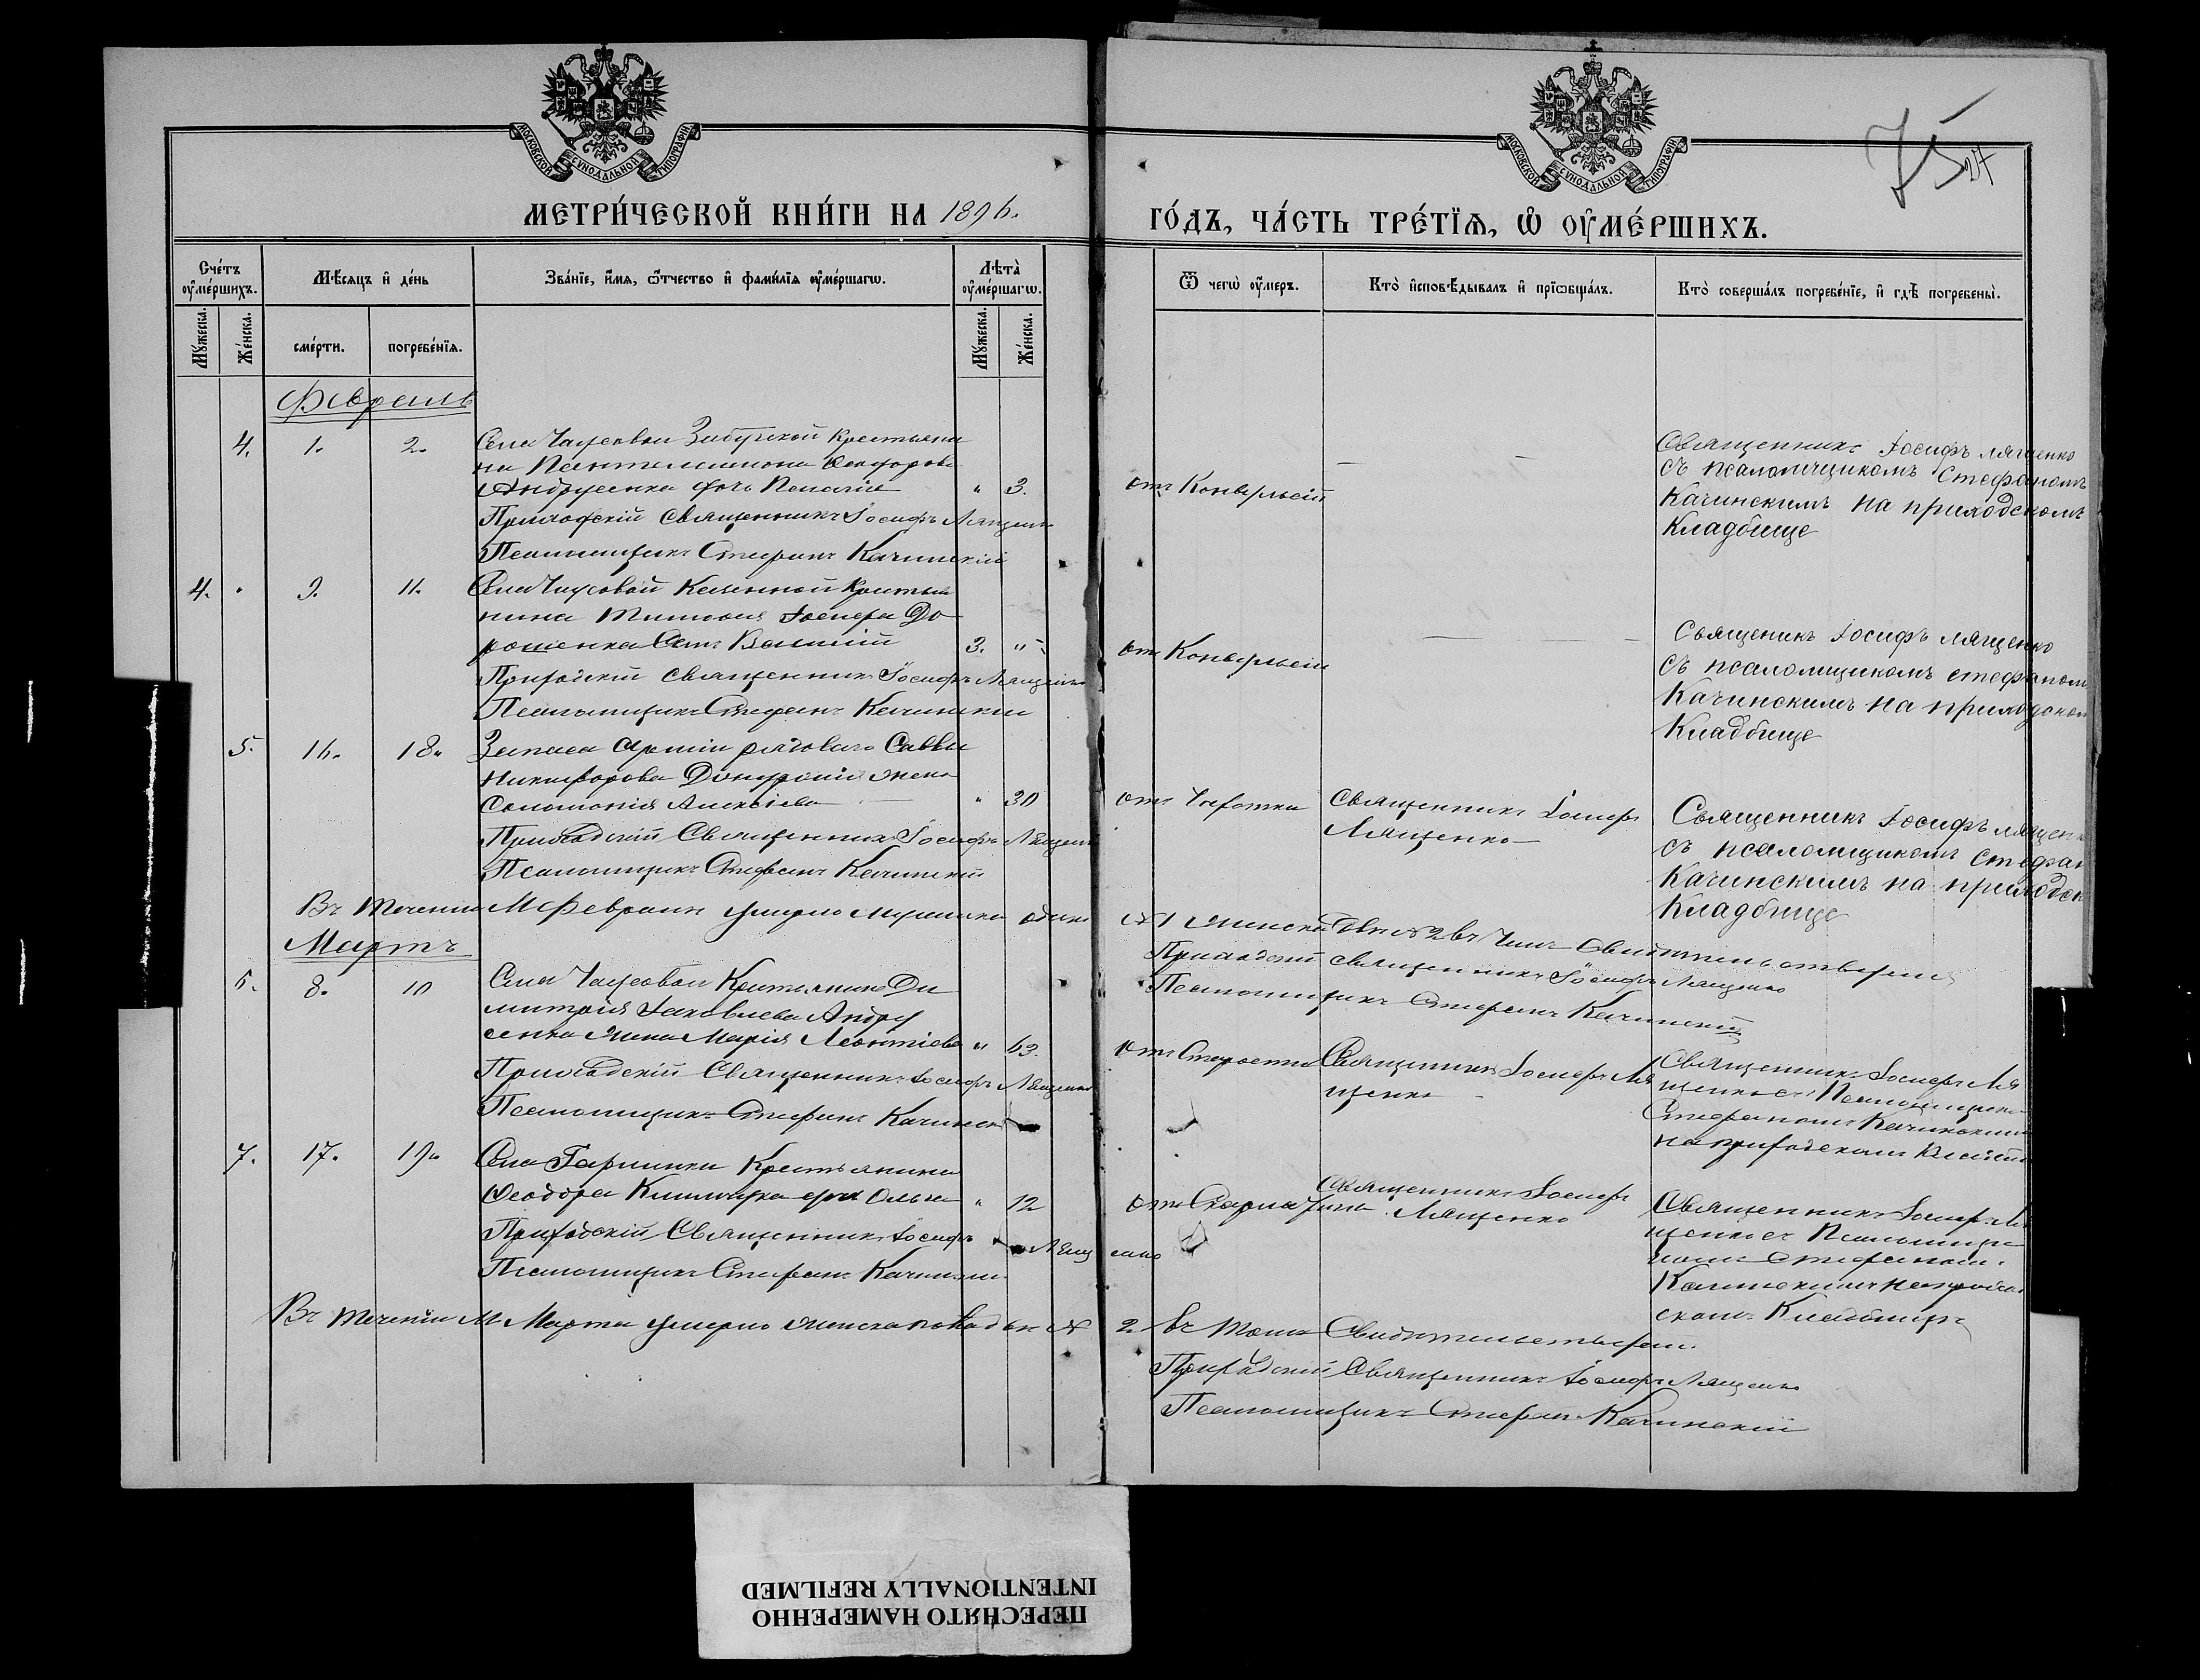 МОСКОВСКОЙ СУНОДАЛЬНОЙ ТИПОГРАФІИ
МОСКОВСКОЙ СУНОДАЛЬНОЙ ТИПОГРАФІИ
75
МЕТРИ́ЧЕСКОЙ КНИ́ГИ НА 1896.
ГО́ДЪ, ЧА́СТЬ ТРЕ́ТЇѦ, Ѡ҆ ОУ҆МЕ́РШИХЪ.
Сче́тъ оу҆ме́ршихъ.
Мѣ́сяцъ и҆ де́нь
Зва́нїе, и҆́мѧ, ѻ҆́тчество и҆ фами́лїѧ оу҆ме́ршагѡ.
Лѣта̀ оу҆ме́ршагѡ.
Ѿ чегѡ̀ оу҆́меръ.
Кто̀ и҆сповѣ́дывалъ и҆ прїѡбща́лъ.
Кто̀ соверша́лъ погребе́нїе, и҆ гдѣ̀ погребены̀.
Му́жеска.
Же́нска.
сме́рти.
погребе́нїѧ.
Му́жеска.
Же́нска.
Февраль
4. 1. 2. Села Чаусовой Крестьяни
на Пантелеимона
Андрусенка дочь " 3.
Приходскій Священникъ Іосифъ Лященко
Псаломщикъ Стефанъ Качинскій
отъ
Священникъ Іосифъ Лященко
съ псаломщикомъ Стефаномъ
Качинскимъ на приходскомъ
Кладбище
4. " 9. 11. Села Чаусовой Казенной Крестья
нина Іосифа До
рошенка Сынъ Василій 3. "
Приходскій Священникъ Іосифъ Лященко
Псаломщикъ Стефанъ Качинскій
отъ
Священикъ Іосифъ Лященко
съ псаломщикомъ стефаном
Качинскимъ на приходском
Кладбище
5. 16. 18. Запаса Арміи рядоваго Саввы
Никифорова жена
Соломонія Алексіева " 30
Приходскій Священникъ Іосифъ Лященко
Псаломщикъ Стефанъ Качинскій
отъ Чахотки
Священникъ Іосифъ
Лященко
Священникъ Іосифъ Лященк
съ псаломщикомъ Стефан
Качинскимъ на приходск
Кладбище
Въ теченіи М Февраля умерло мужска одинъ №1 женска двѣ №2 въ чемъ Свидѣтельствуемъ
Приходскій священникъ Іосифъ Лященко
Псаломщикъ Стефанъ Качинскій
Мартъ
6. 8. 10 Села Чаусовой Крестьянина Ди
митрія Іаковлева Андру
сенка жена Марія Леонтіева " 63.
Приходскій Священникъ Іосифъ Лященко
Псаломщикъ Стефанъ Качинск
отъ Старости
Священникъ Іосифъ Ля
щенко
Священникъ Іосифъ Ля
щенко съ Псаломщико
Стефаномъ Качинским
на приходскомъ
7. 17. 19. Села Крестьянина
Ѳеодора дочь Ольга " 12
Приходскій Священникъ Іосифъ Лященко
Псаломщикъ Стефанъ Качински
отъ Скарлатины
Священникъ Іосифъ
Лященко
Священникъ Іосифъ Ля
щенко съ Псаломщи
комъ Стефаномъ
Качинскимъ на приход
скомъ Кладбищѣ
Въ теченіи М Марта умерло женска пола двѣ № 2 въ томъ Свидѣтельствуемъ
Приходскій Священникъ Іосифъ Лященко
Псаломщикъ Стефанъ Качинскій
ПЕРЕСНЯТО НАМЕРЕННО
INTENTIONALLY REFILMED